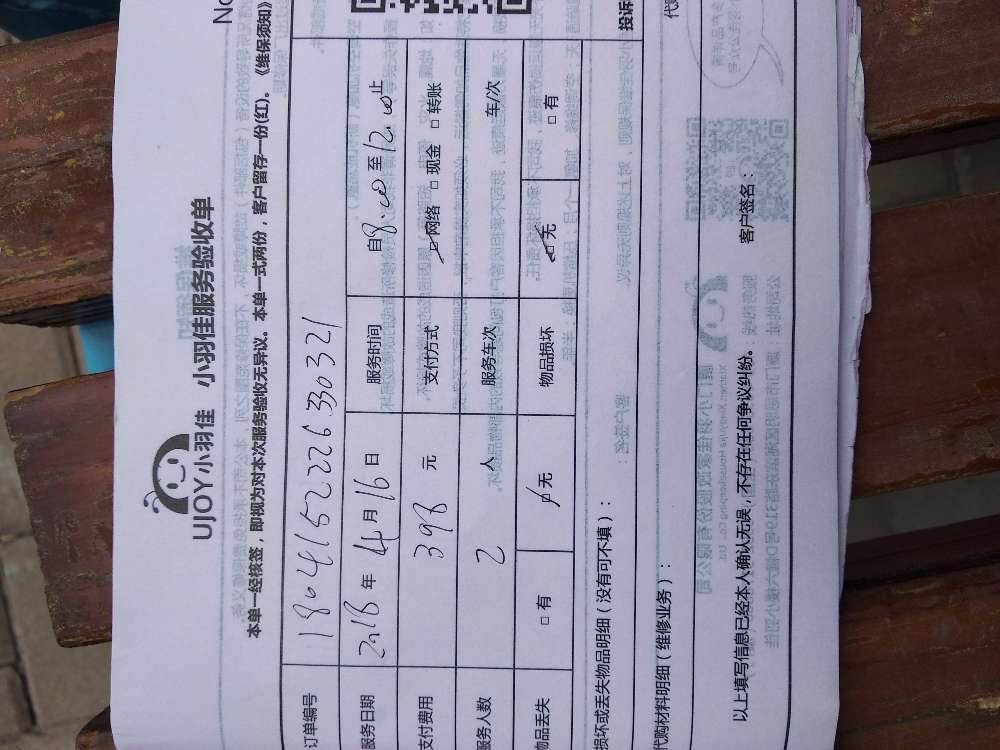 No
UJOY小羽佳 小羽佳服务验收单
本单一经核签，即视为对本次服务验收无异议。本单一式两份，客户留存一份(红)。《维保须知》
订单编号 1804152226330321
服务日期 2018 年 4 月 16 日 服务时间 自 8:00 至 12:00 止
支付费用 398 元 支付方式 网络 现金 转账
服务人数 2 人 服务车次 车/次
物品丢失 有 无 物品损坏 无 有
损坏或丢失物品明细（没有可不填）：
投诉
代购材料明细（维修业务）：
以上填写信息已经本人确认无误，不存在任何争议纠纷。 客户签名：